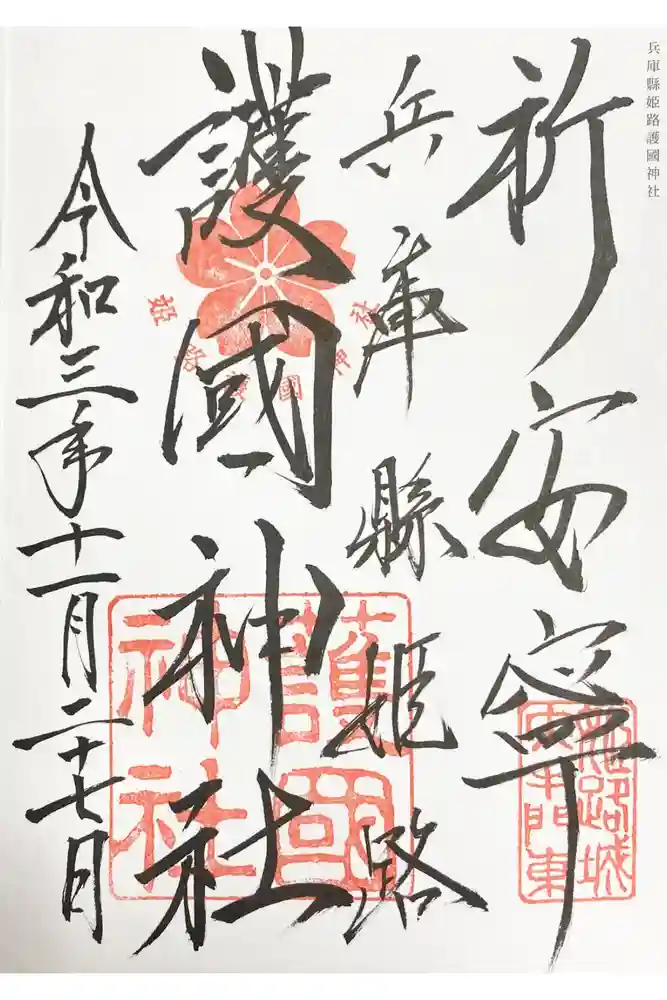 兵庫縣姫路護國神社
祈安寧
姫路城
大手門東
兵庫縣姫路
護國神社
姫路護國神社
護國
神社
令和三年十一月二十七日